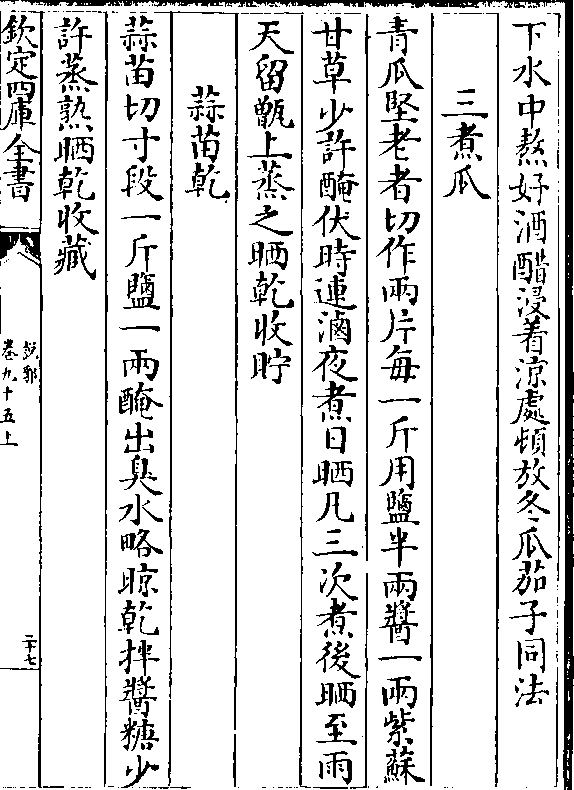 下水中熬好酒醋浸着凉處頓放冬瓜茄子同法
三煮瓜
青瓜堅老者切作兩片每一斤用鹽半兩醬一兩紫蘇
甘草少許醃伏時連滷夜煮日晒凡三次煮後晒至雨
天留甑上蒸之晒乾收貯
蒜苗乾
蒜苗切寸段一斤鹽一兩醃出臭水略晾乾拌醬糖少
許蒸熟晒乾收藏
欽定四庫全書
說郛
卷九十五上
二十七